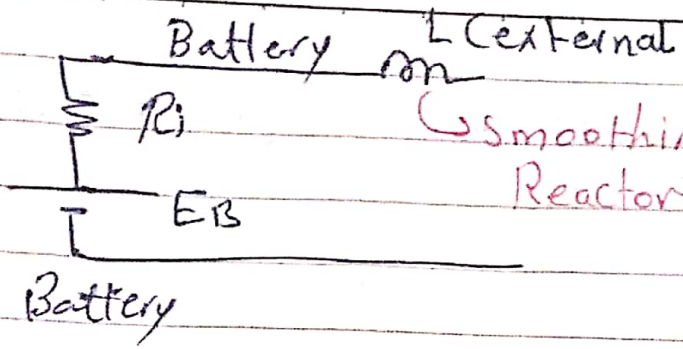 Battery L (external
Ri
smoothi
Reactor
EB
Battery